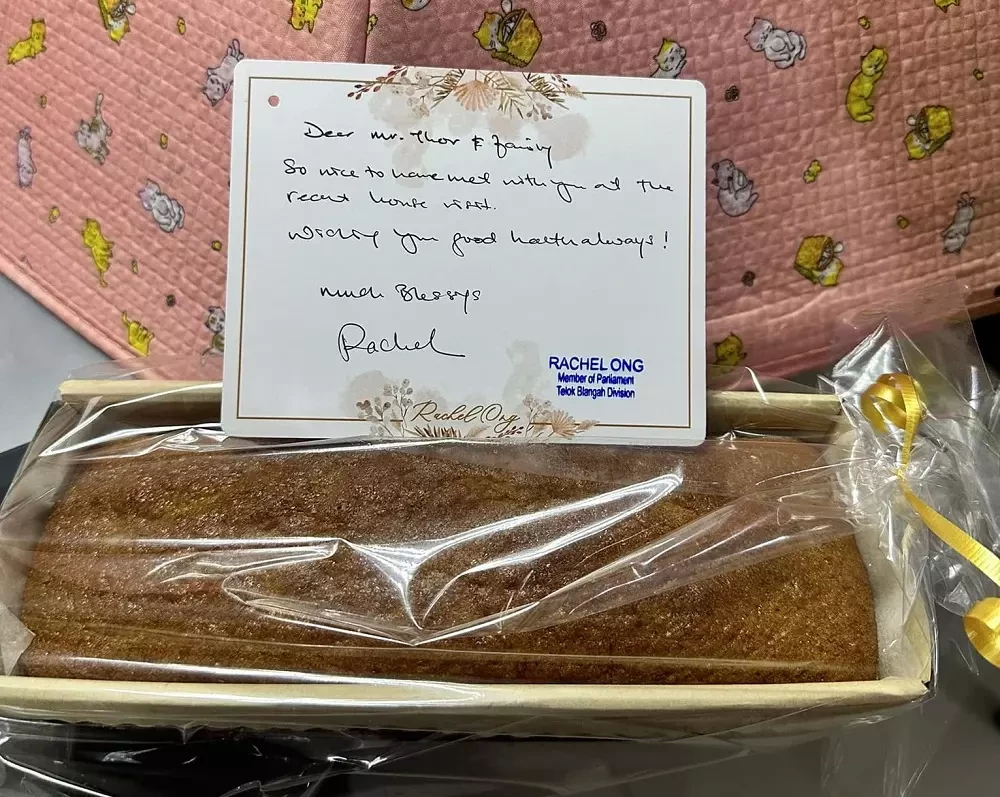 Dear Mr. Thor & family
So nice to have met with you at the
recent house visit.
Wishing you good health always!
Much Blessings
Rachel
RACHEL ONG
Member of Parliament
Telok Blangah Division
Rachel Ong